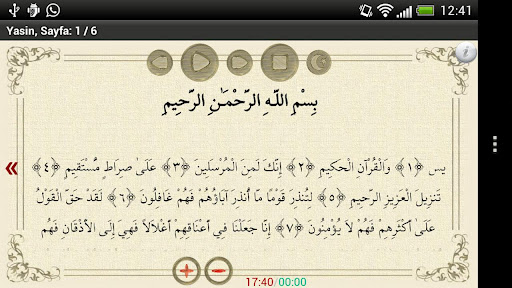 12:41
Yasin, Sayfa: 1 / 6
بِسْمِ اللَّـهِ الرَّحْمَـٰنِ الرَّحِيمِ
يس ﴿١﴾ وَالْقُرْآنِ الْحَكِيمِ ﴿٢﴾ إِنَّكَ لَمِنَ الْمُرْسَلِينَ ﴿٣﴾ عَلَىٰ صِرَاطٍ مُّسْتَقِيمٍ ﴿٤﴾
تَنزِيلَ الْعَزِيزِ الرَّحِيمِ ﴿٥﴾ لِتُنذِرَ قَوْمًا مَّا أُنذِرَ آبَاؤُهُمْ فَهُمْ غَافِلُونَ ﴿٦﴾ لَقَدْ حَقَّ الْقَوْلُ
عَلَىٰ أَكْثَرِهِمْ فَهُمْ لَا يُؤْمِنُونَ ﴿٧﴾ إِنَّا جَعَلْنَا فِي أَعْنَاقِهِمْ أَغْلَالًا فَهِيَ إِلَى الْأَذْقَانِ فَهُم
17:40/00:00